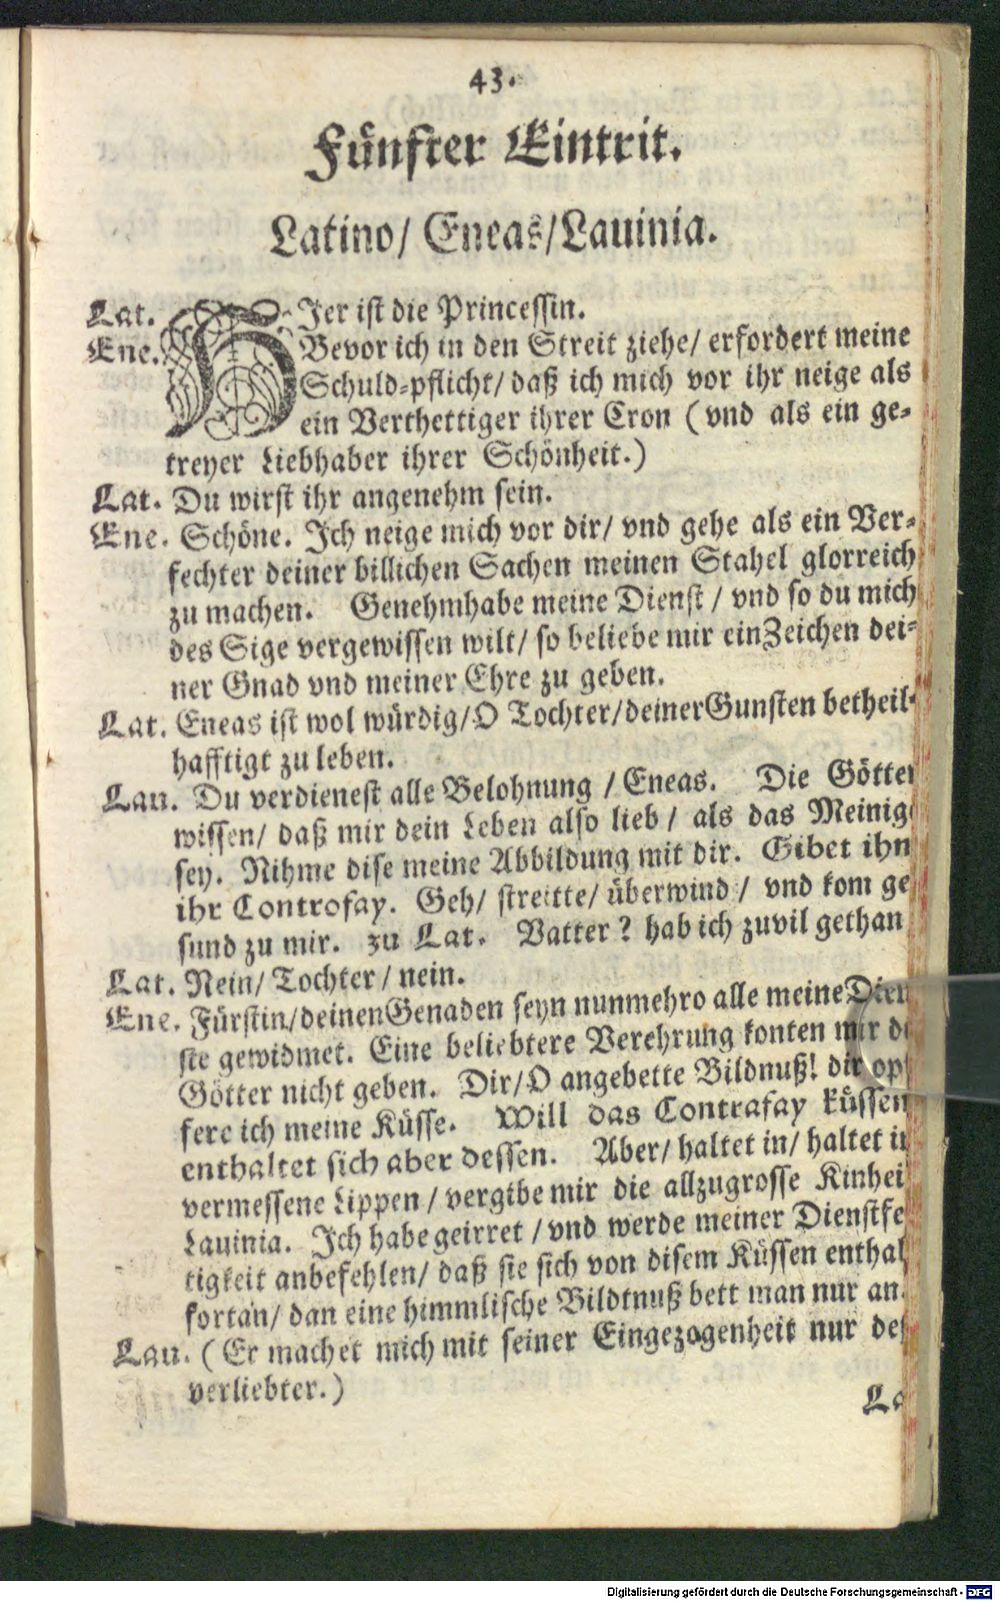 43.
Fünfter Eintrit.
Latino/ Eneas/Lauinia.
Lat. HJer ist die Princessin.
Ene. Bevor ich in den Streit ziehe/ erfordert meine
Schuld-pflicht/ daß ich mich vor ihr neige als
ein Verthettiger ihrer Cron (vnd als ein ge-
treyer Liebhaber ihrer Schönheit.)
Lat. Du wirst ihr angenehm sein.
Ene. Schöne. Ich neige mich vor dir/ vnd gehe als ein Ver-
fechter deiner billichen Sachen meinen Stahel glorreich
zu machen. Genehmhabe meine Dienst / vnd so du mich
des Sige vergewissen wilt/ so beliebe mir ein Zeichen dei-
ner Gnad vnd meiner Ehre zu geben.
Lat. Eneas ist wol würdig/O Tochter/deiner Gunsten betheil-
hafftigt zu leben.
Lau. Du verdienest alle Belohnung / Eneas. Die Götter
wissen/ daß mir dein Leben also lieb / als das Meinig
sey. Nihme dise meine Abbildung mit dir. Gibet ihn
ihr Controfay. Geh/ streitte/ überwind / vnd kom ge
sund zu mir. zu Lat. Vatter ? hab ich zuvil gethan
Lat. Nein/ Tochter / nein.
Ene. Fürstin/deinen Genaden seyn nunmehro alle meine Dien
ste gewidmet. Eine beliebtere Verehrung konten mir d
Götter nicht geben. Dir/O angebette Bildnuß! dir op
fere ich meine Küsse. Will das Contrafay küssen
enthaltet sich aber dessen. Aber/ haltet in/ haltet i
vermessene Lippen / vergibe mir die allzugrosse Kinhei
Lauinia. Ich habe geirret / vnd werde meiner Dienstfe
tigkeit anbefehlen/ daß sie sich von disem Küssen enthal
fortan/ dan eine himmlische Bildtnuß bett man nur an.
Lau. (Er machet mich mit seiner Eingezogenheit nur de
verliebter.)
La
Digitalisierung gefördert durch die Deutsche Forschungsgemeinschaft - DFG